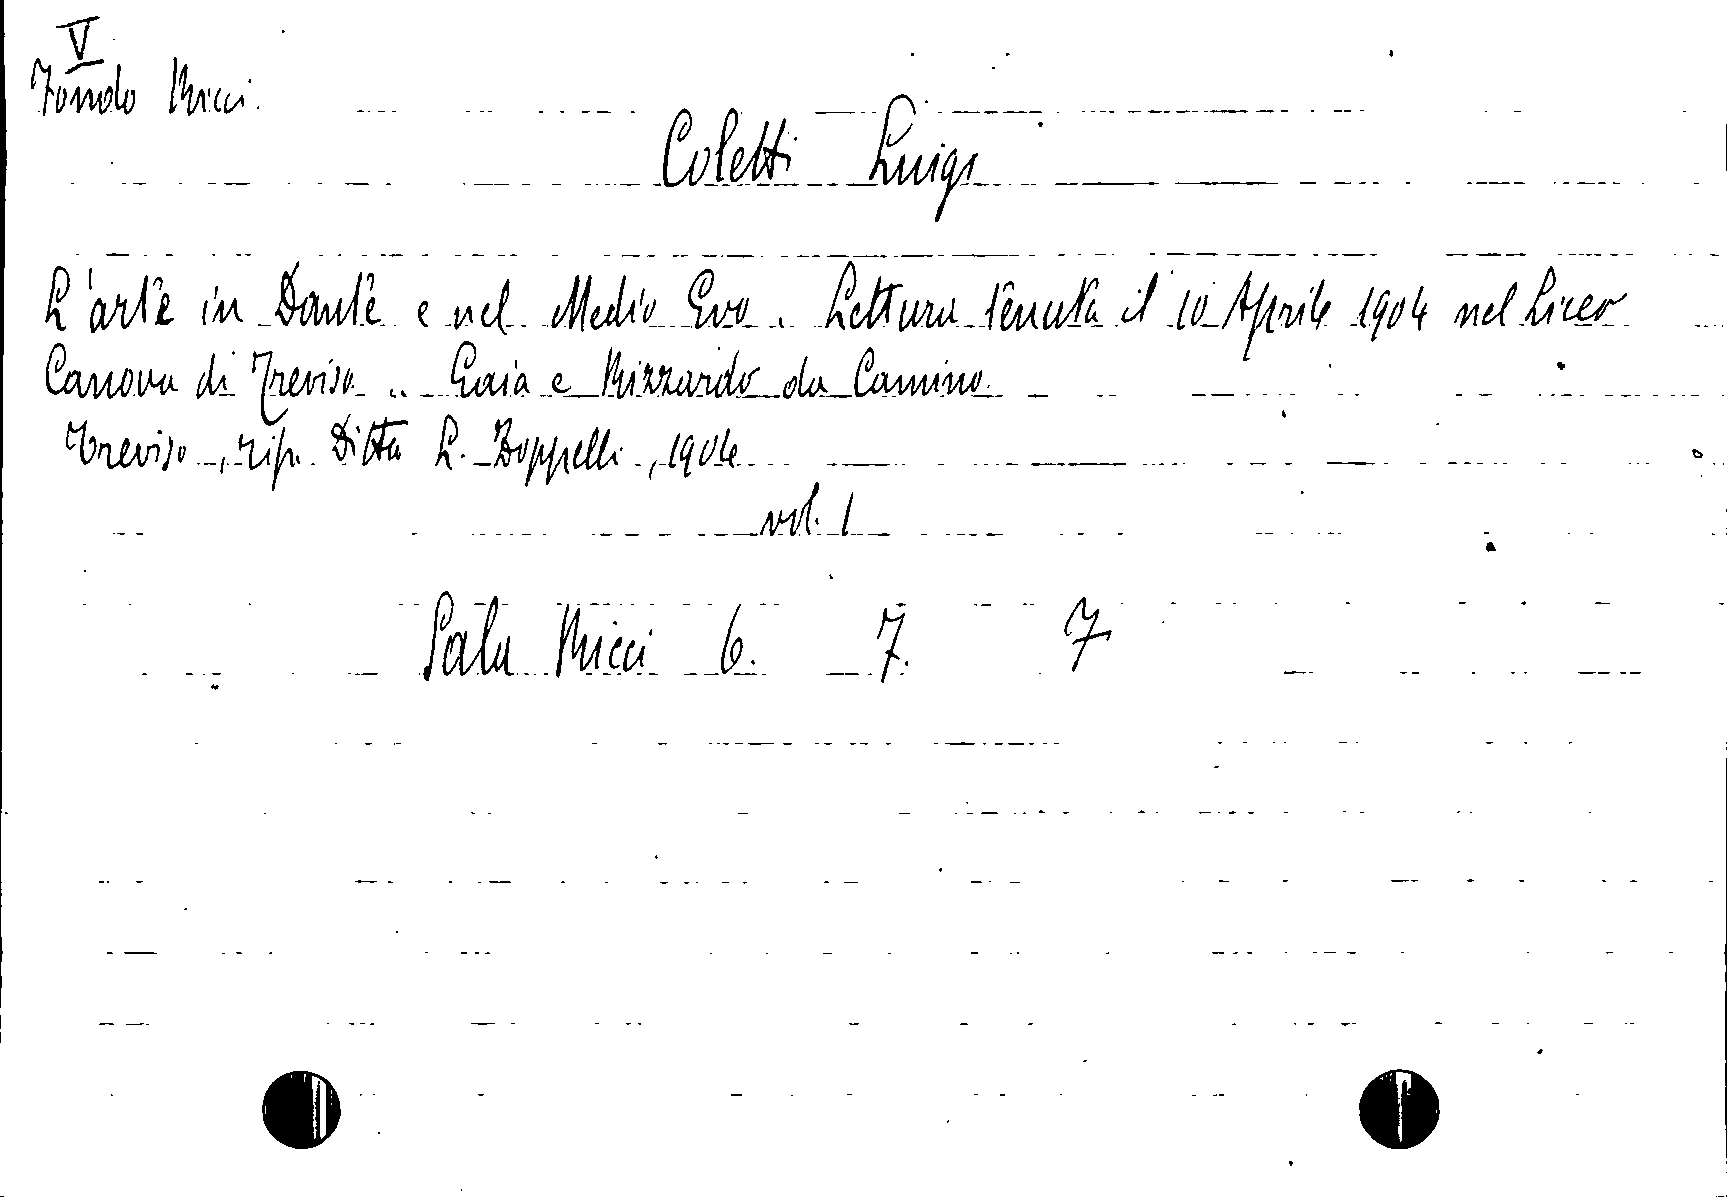 V
Fondo Ricci.
Coletti Luigi
L'arte in Dante e nel Medio Evo. Lettura tenuta il 10 Aprile 1904 nel Liceo
Canova di Treviso .. Gaia e Rizzardo da Camino.
Treviso, tip. Ditta L. Zoppelli, 1904
vol. 1
Sala Ricci 6. 7. 7